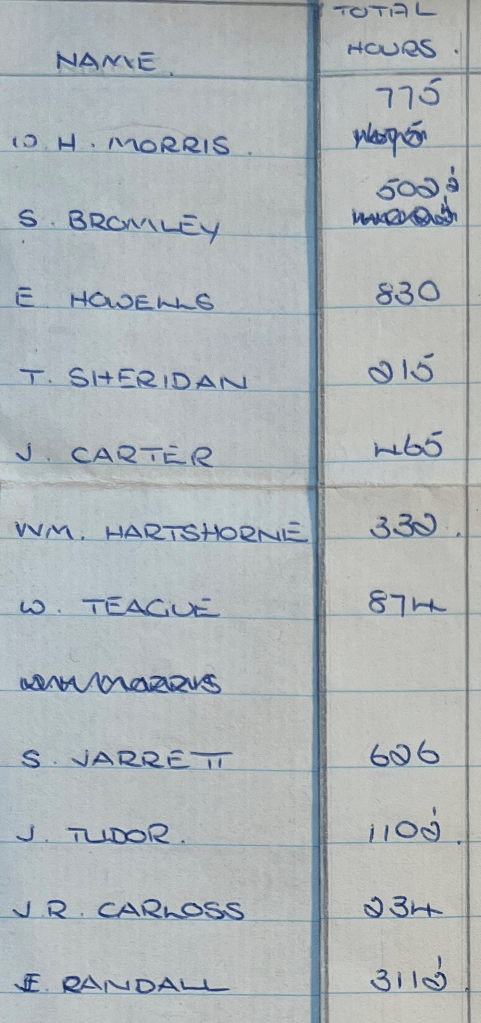 TOTAL
NAME. HOURS.
775
W. H. MORRIS.
502½
S. BROMLEY
E. HOWELLS 830
T. SHERIDAN 215
J. CARTER 465
WM. HARTSHORNE 332.
W. TEAGUE 874
S. JARRETT 626
J. TUDOR. 110½.
J.R. CARLOSS 234
E. RANDALL 311½